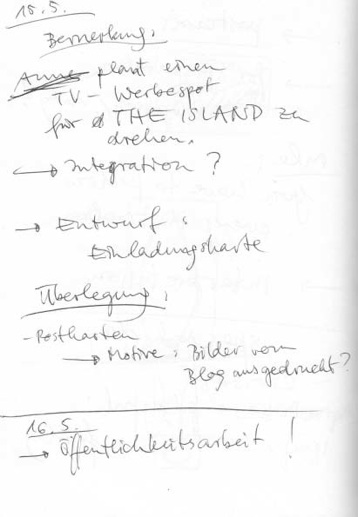 15.5.
Bemerkung:
plant einen
TV - Werbespot
für THE ISLAND zu
drehen.
→ Integration?
→ Entwurf:
Einladungskarte
Überlegung:
- Postkarten
→ Motive: Bilder vom
Blog ausgedruckt?
16.5.
→ Öffentlichkeitsarbeit!